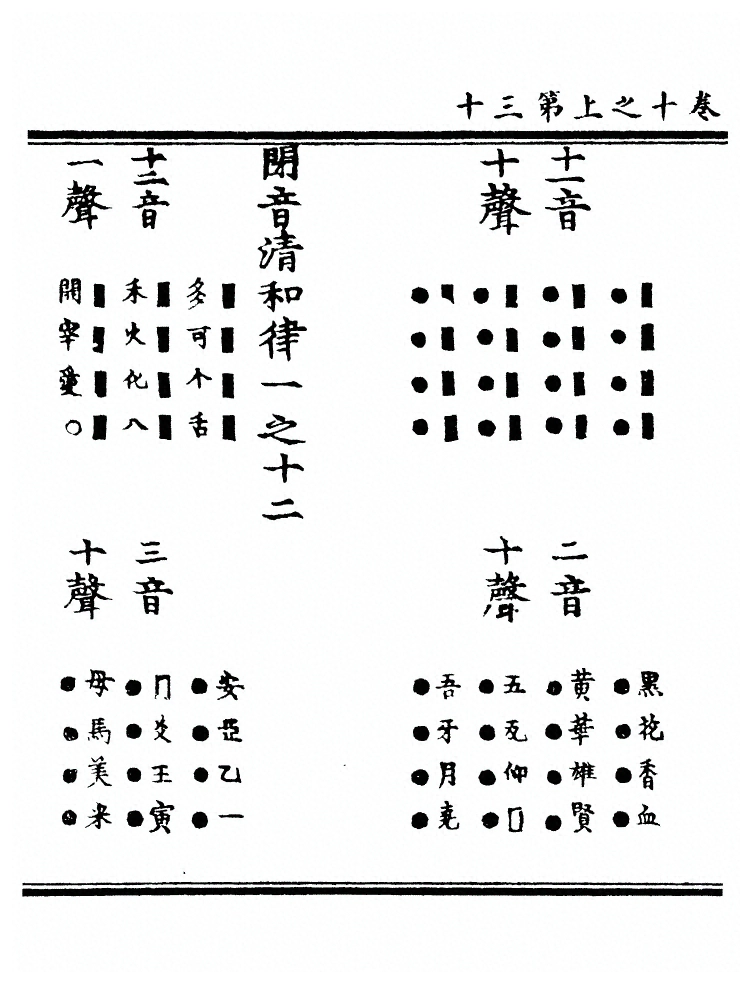 卷十之上第三十
十一音
十聲
■■■■
●●●●
■■■■
●●●●
■■■■
●●●●
■■■■
●●●●
二音
十聲
黑花香血
●●●●
黄華雄賢
●●●●
五瓦仰□
●●●●
吾牙月堯
●●●●
閉音清和律一之十二
十二音
一聲
■■■■
多可个舌
■■■■
禾火化八
■■■■
開宰愛○
三音
十聲
安亞乙一
●●●●
□爻王寅
●●●●
母馬美米
●●●●